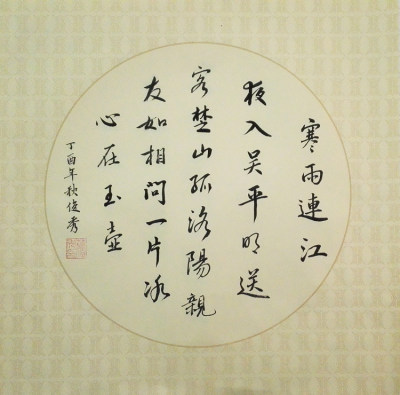 寒雨連江
夜入吴平明送
客楚山孤洛陽親
友如相問一片冰
心在玉壺
丁酉年秋俊秀